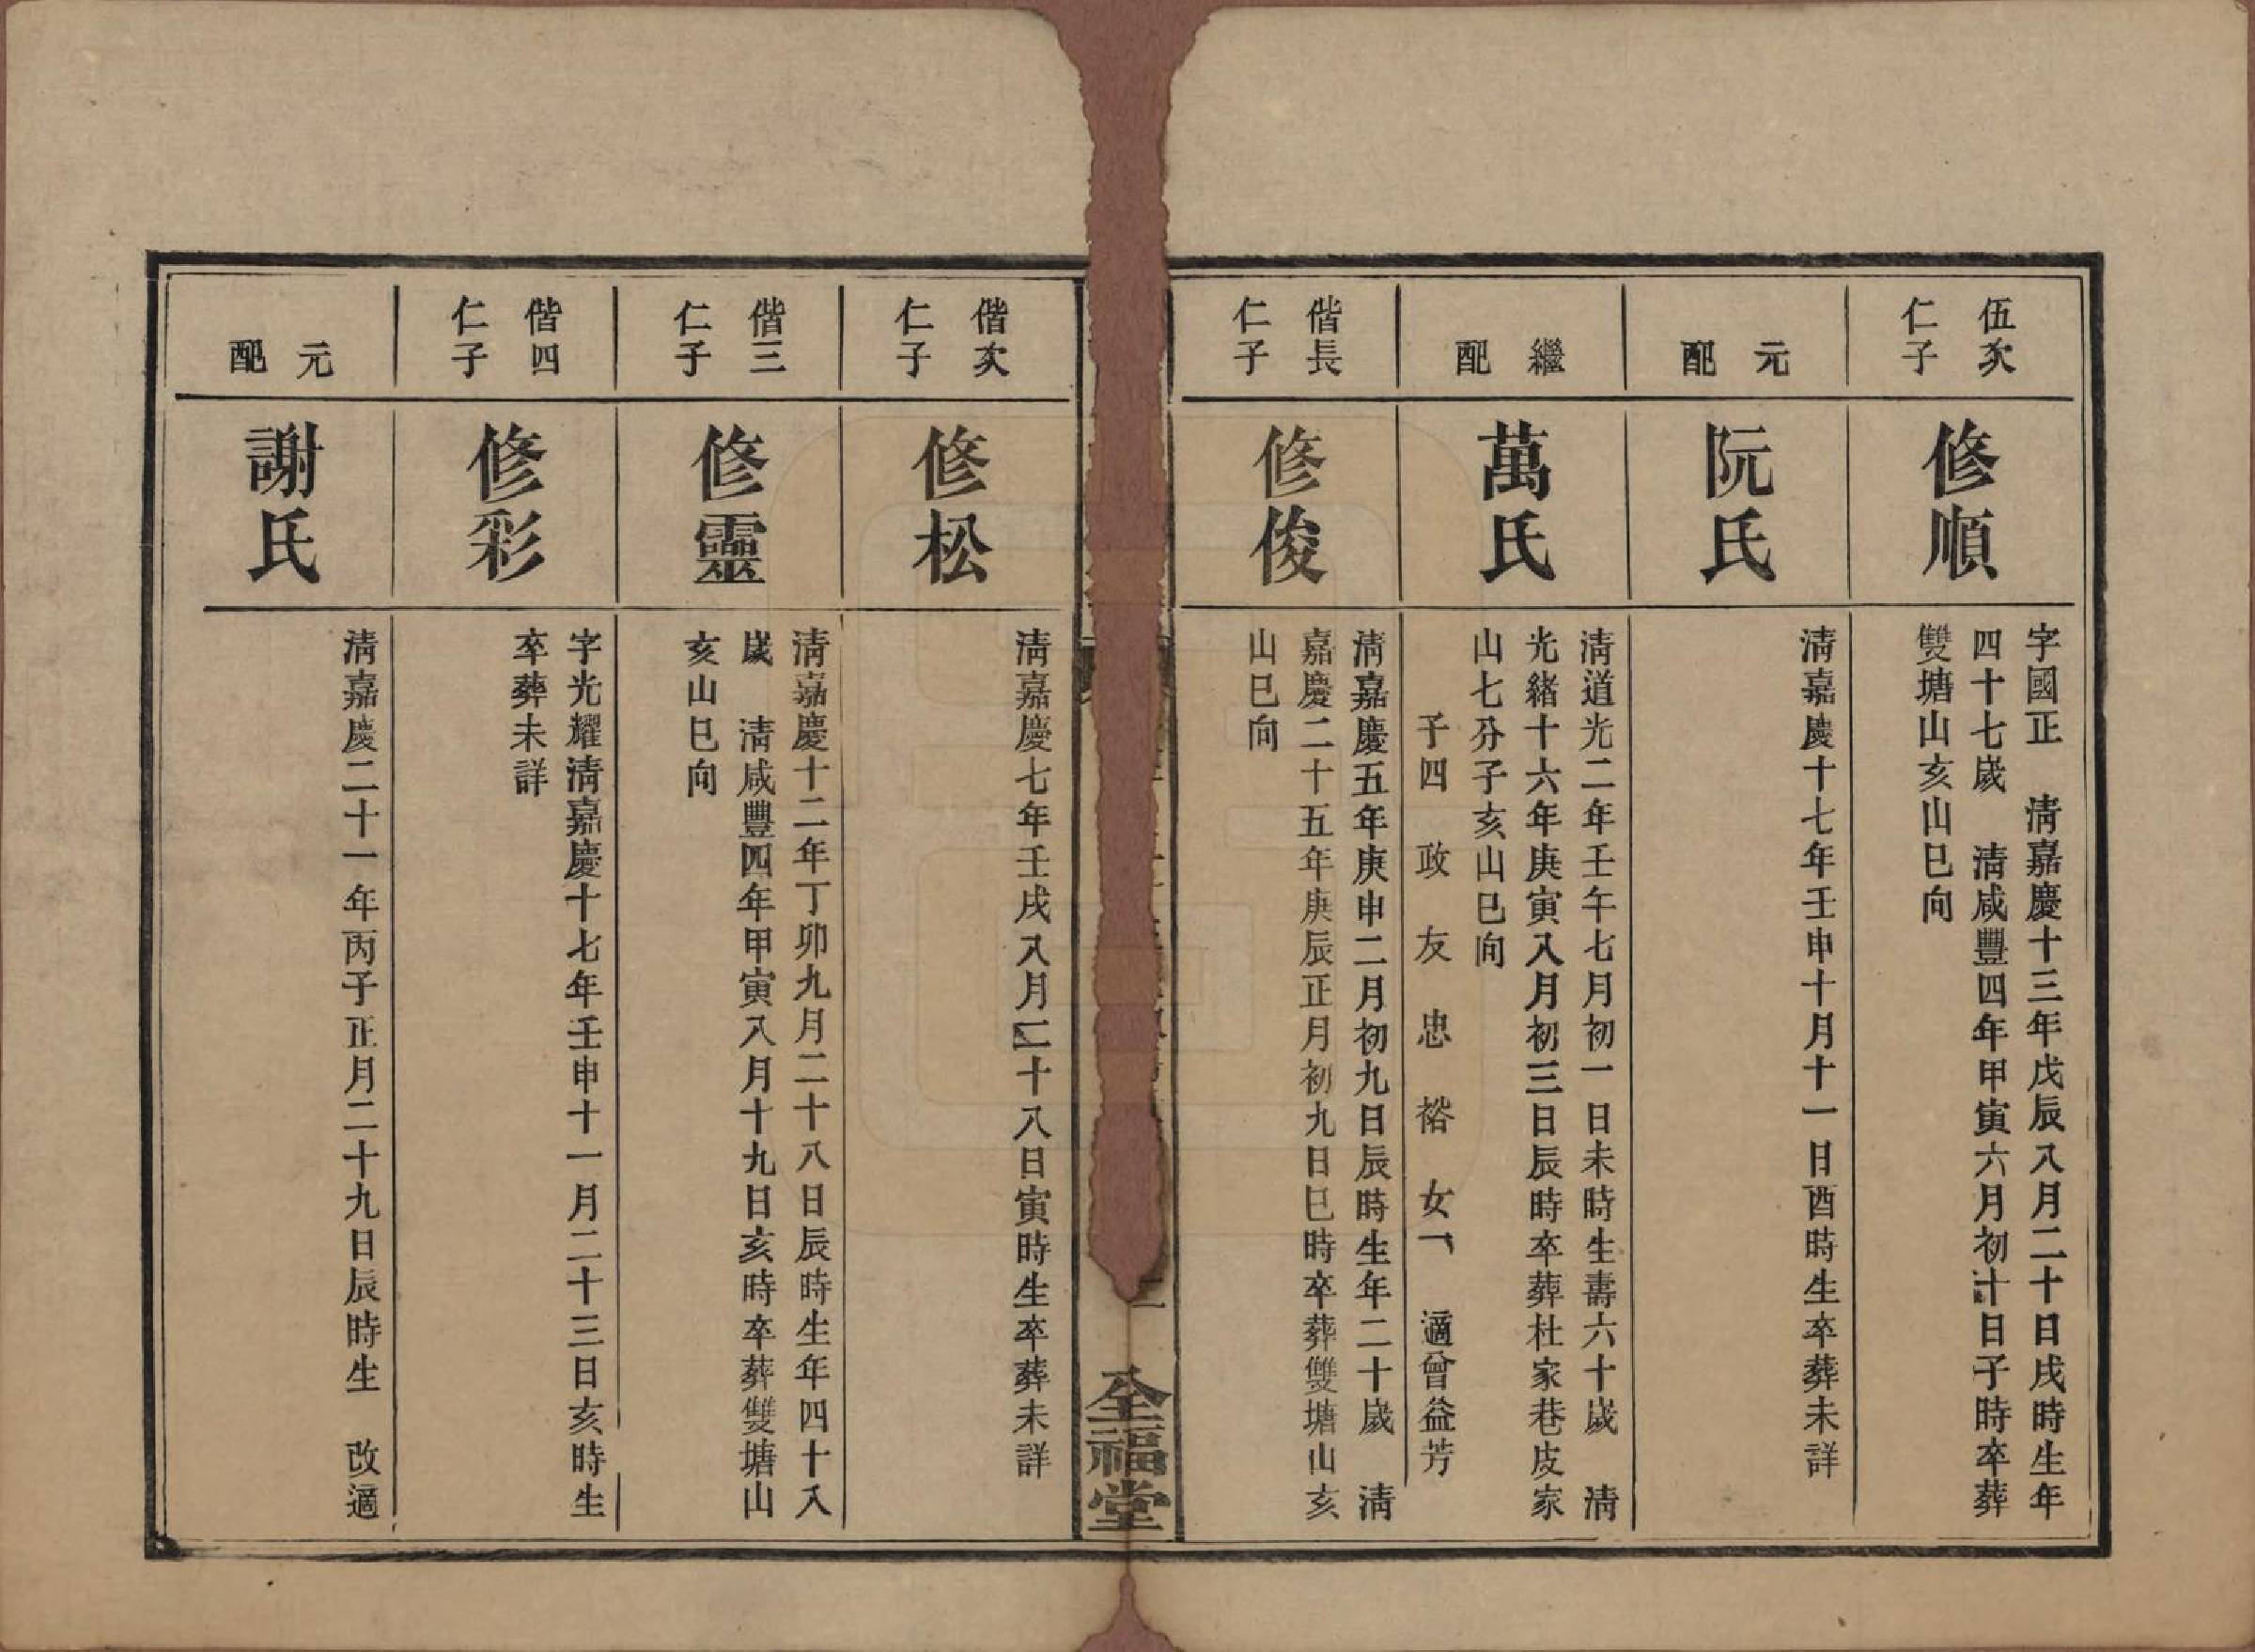 伍次
仁子
修順
字國正　淸嘉慶十三年戊辰八月二十日戌時生年
四十七歲　淸咸豐四年甲寅六月初十日子時卒葬
雙塘山亥山巳向
元
配
阮氏
淸嘉慶十七年壬申十月十一日酉時生卒葬未詳
繼
配
萬氏
淸道光二年壬午七月初一日未時生壽六十歲　淸
光緒十六年庚寅八月初三日辰時卒葬杜家巷皮家
山七分子亥山巳向
子四　政　友　忠　裕　女一　適曾益芳
偕長
仁子
修俊
淸嘉慶五年庚申二月初九日辰時生年二十歲　淸
嘉慶二十五年庚辰正月初九日巳時卒葬雙塘山亥
山巳向
全福堂
偕次
仁子
修松
淸嘉慶七年壬戌八月二十八日寅時生卒葬未詳
偕三
仁子
修靈
淸嘉慶十二年丁卯九月二十八日辰時生年四十八
歲　淸咸豐四年甲寅八月十九日亥時卒葬雙塘山
亥山巳向
偕四
仁子
修彩
字光耀淸嘉慶十七年壬申十一月二十三日亥時生
卒葬未詳
元
配
謝氏
淸嘉慶二十一年丙子正月二十九日辰時生　改適